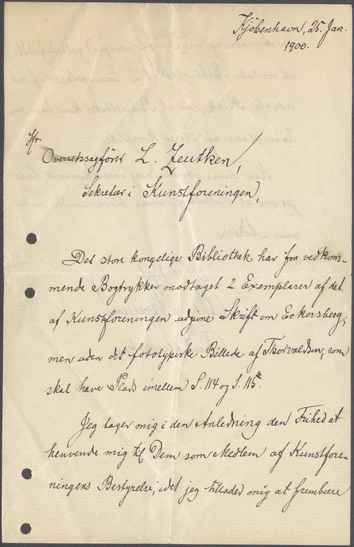 Kjöbenhavn, 25. Jan.
1900.
Hr.
Overretssagfører L. Zeuthen,
Sekretær i Kunstforeningen,
Det store kongelige Bibliothek har fra vedkom-
mende Bogtrykker modtaget 2 Exemplarer af det
af Kunstforeningen udgivne Skrift om Eckersberg,
men uden det fototypiske Billede af Thorvaldsen, som
skal have Plads imellem S. 114 og S. 115.
Jeg tager mig i den Anledning den Frihed at
henvende mig til Dem som Medlem af Kunstfore-
ningens Bestyrelse, idet jeg tillader mig at frembære